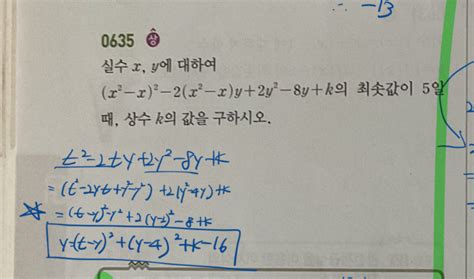 ∴ -13
0635 상
실수 x, y에 대하여
(x²-x)²-2(x²-x)y+2y²-8y+k의 최솟값이 5일
때, 상수 k의 값을 구하시오.
t²-2ty+2y²-8y+k
=(t²-2yt+y²-y²)+2(y²-4y)+k
=(t-y)²-y²+2(y-2)²-8+k
y-(t-y)²+(y-4)²+k-16